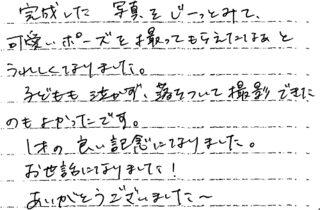 完成した 写真をじーっとみて、
可愛いポーズを撮ってもらえたなぁと
うれしくなりました。
子どもも泣かず、落ちついて撮影できた
のもよかったです。
1才の良い記念になりました。
お世話になりました!
ありがとうございました〜